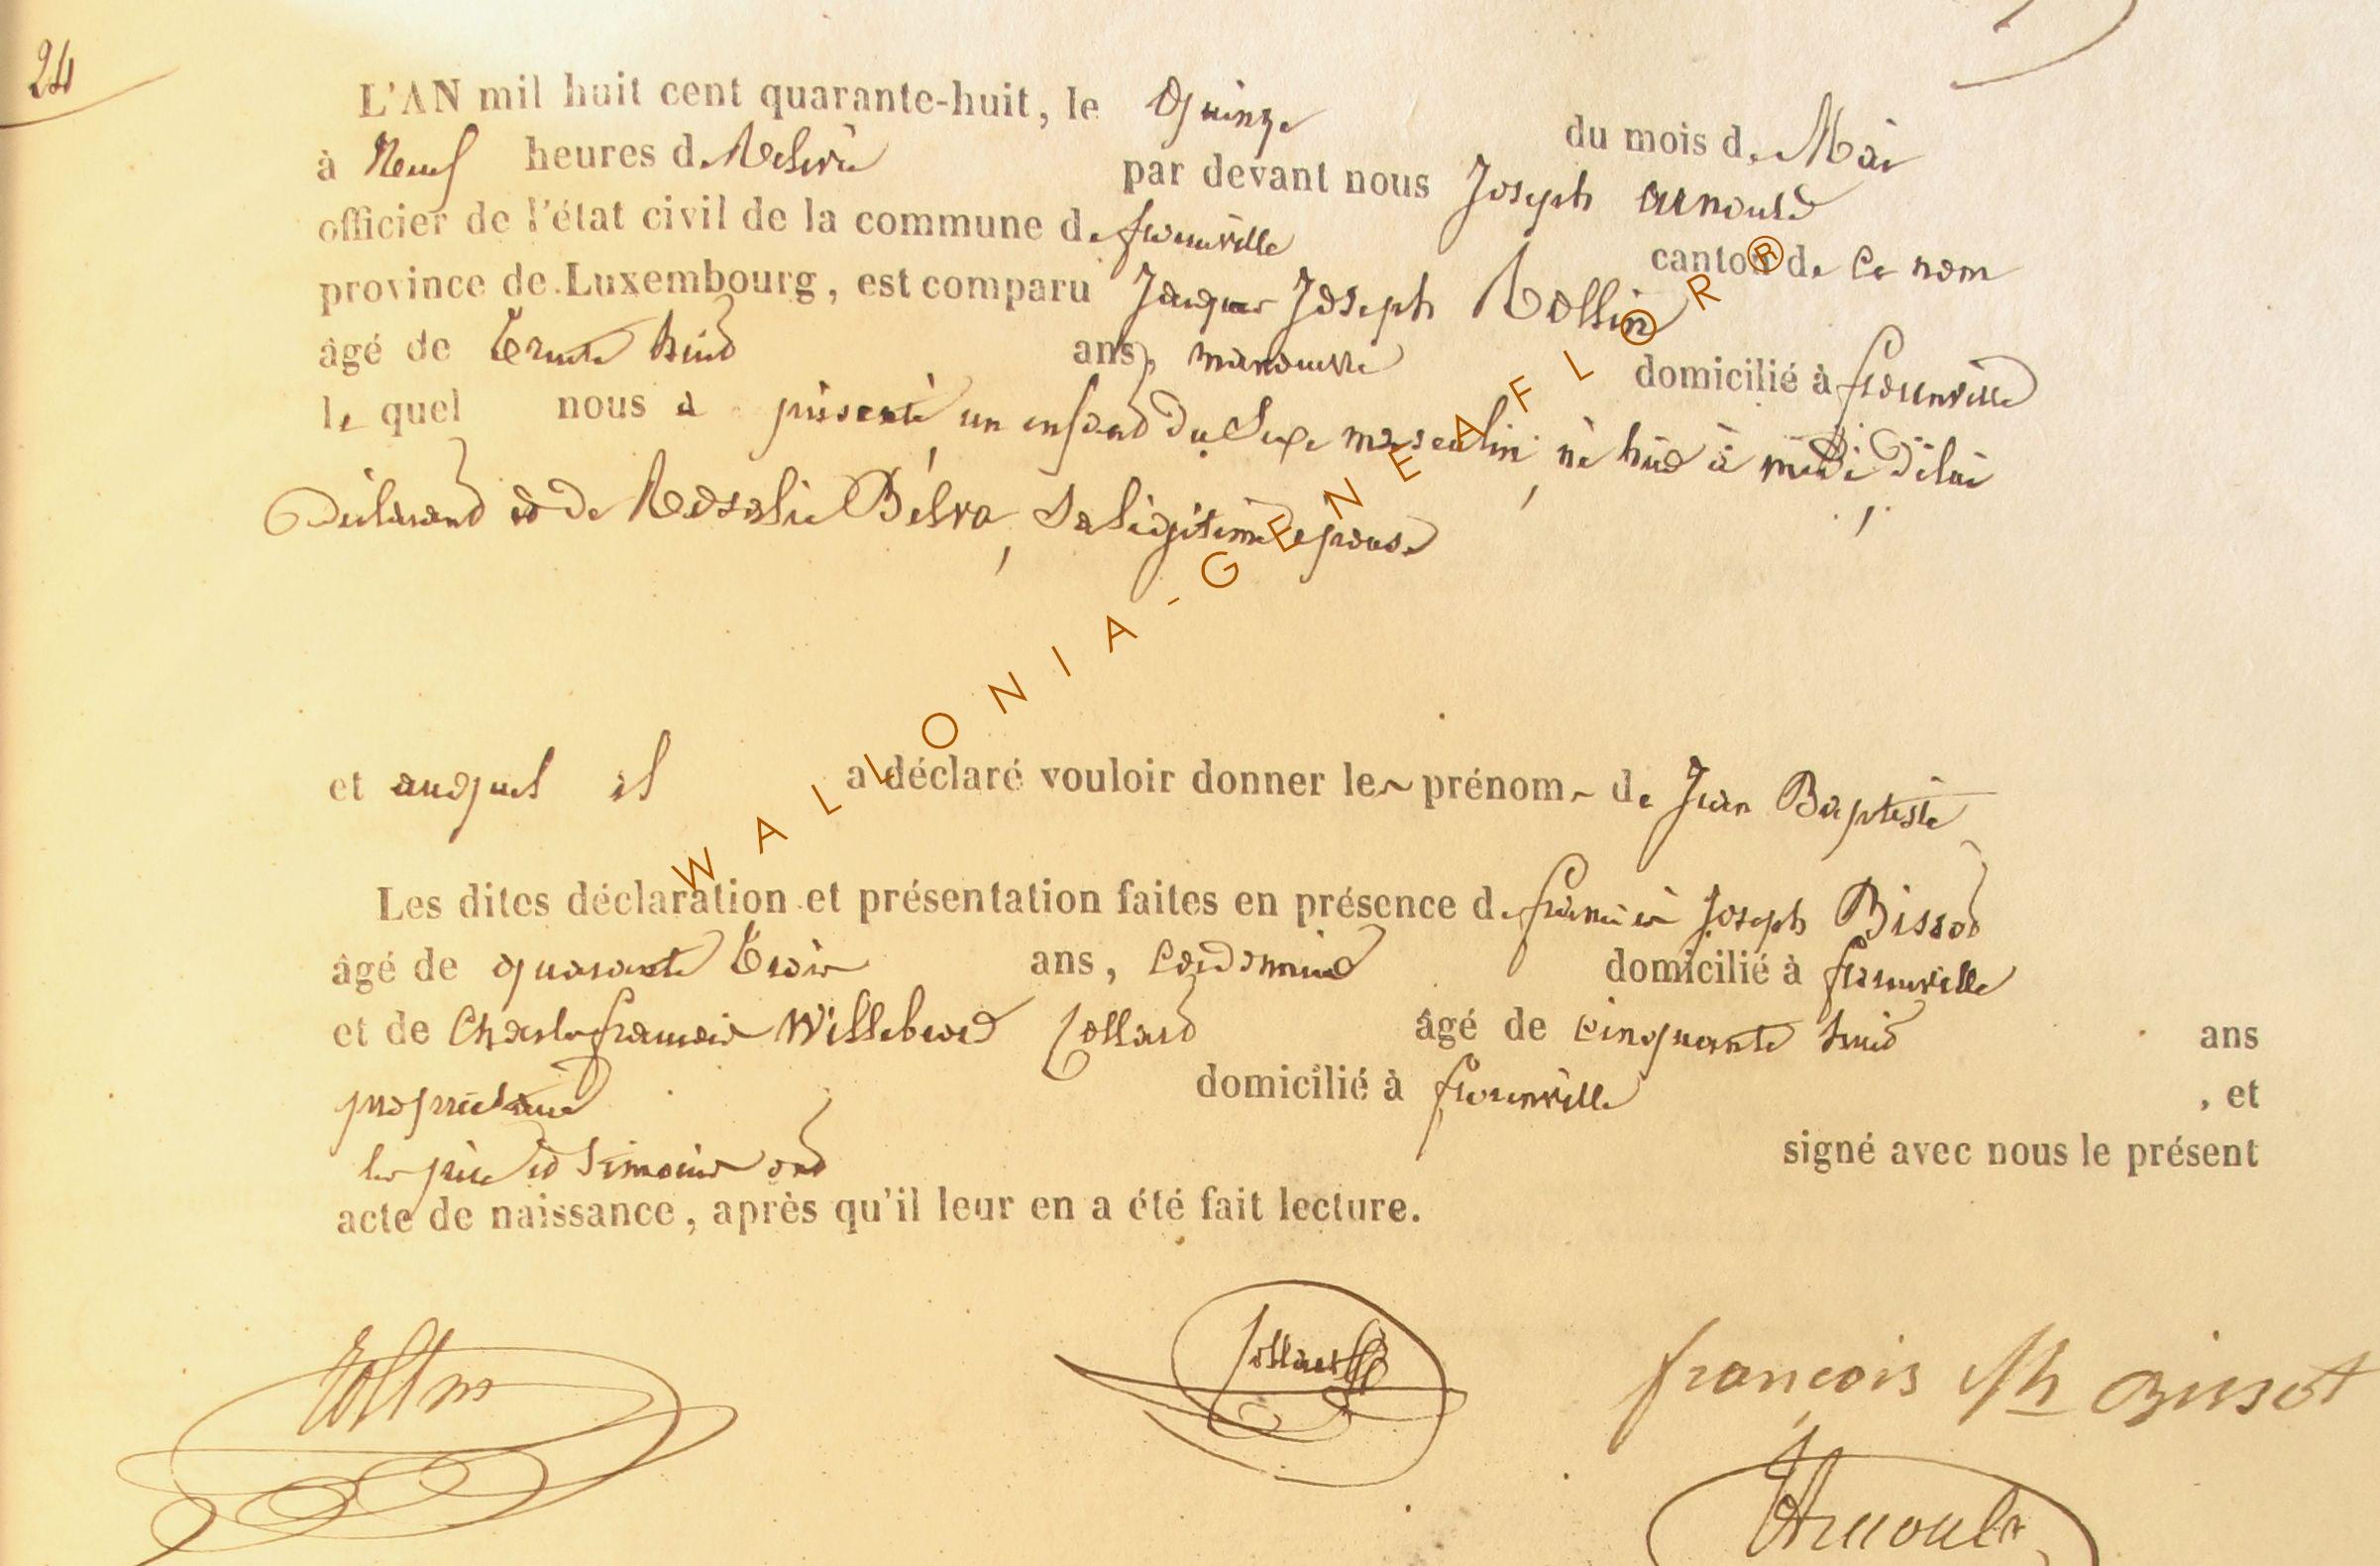 24
L'AN mil huit cent quarante-huit, le Quinze du mois de Mai
à Neuf heures d relevée par devant nous Joseph Arnould
officier de l'état civil de la commune de florenville canton de ce nom
province de Luxembourg, est comparu Jacques Joseph Rollin
âgé de trente huit ans, manouvre domicilié à florenville
le quel nous a présenté un enfant du Sexe masculin, né hier à midi, de lui
Déclarant et de Rosalie Belva, Sa légitime epouse
et auquel il a déclaré vouloir donner les prénoms de Jean Baptiste
Les dites déclaration et présentation faites en présence de françois Joseph Bissot
âgé de quarante trois ans, Cordonnier domicilié à florenville
et de Charles françois Willebrord Collard âgé de cinquante huit ans
propriétaire domicilié à florenville , et
les père et témoins ont signé avec nous le présent
acte de naissance, après qu'il leur en a été fait lecture.
Rollin
Collard
françois Jph Bissot
Arnould
WALLONIA-GENEAFLOR®